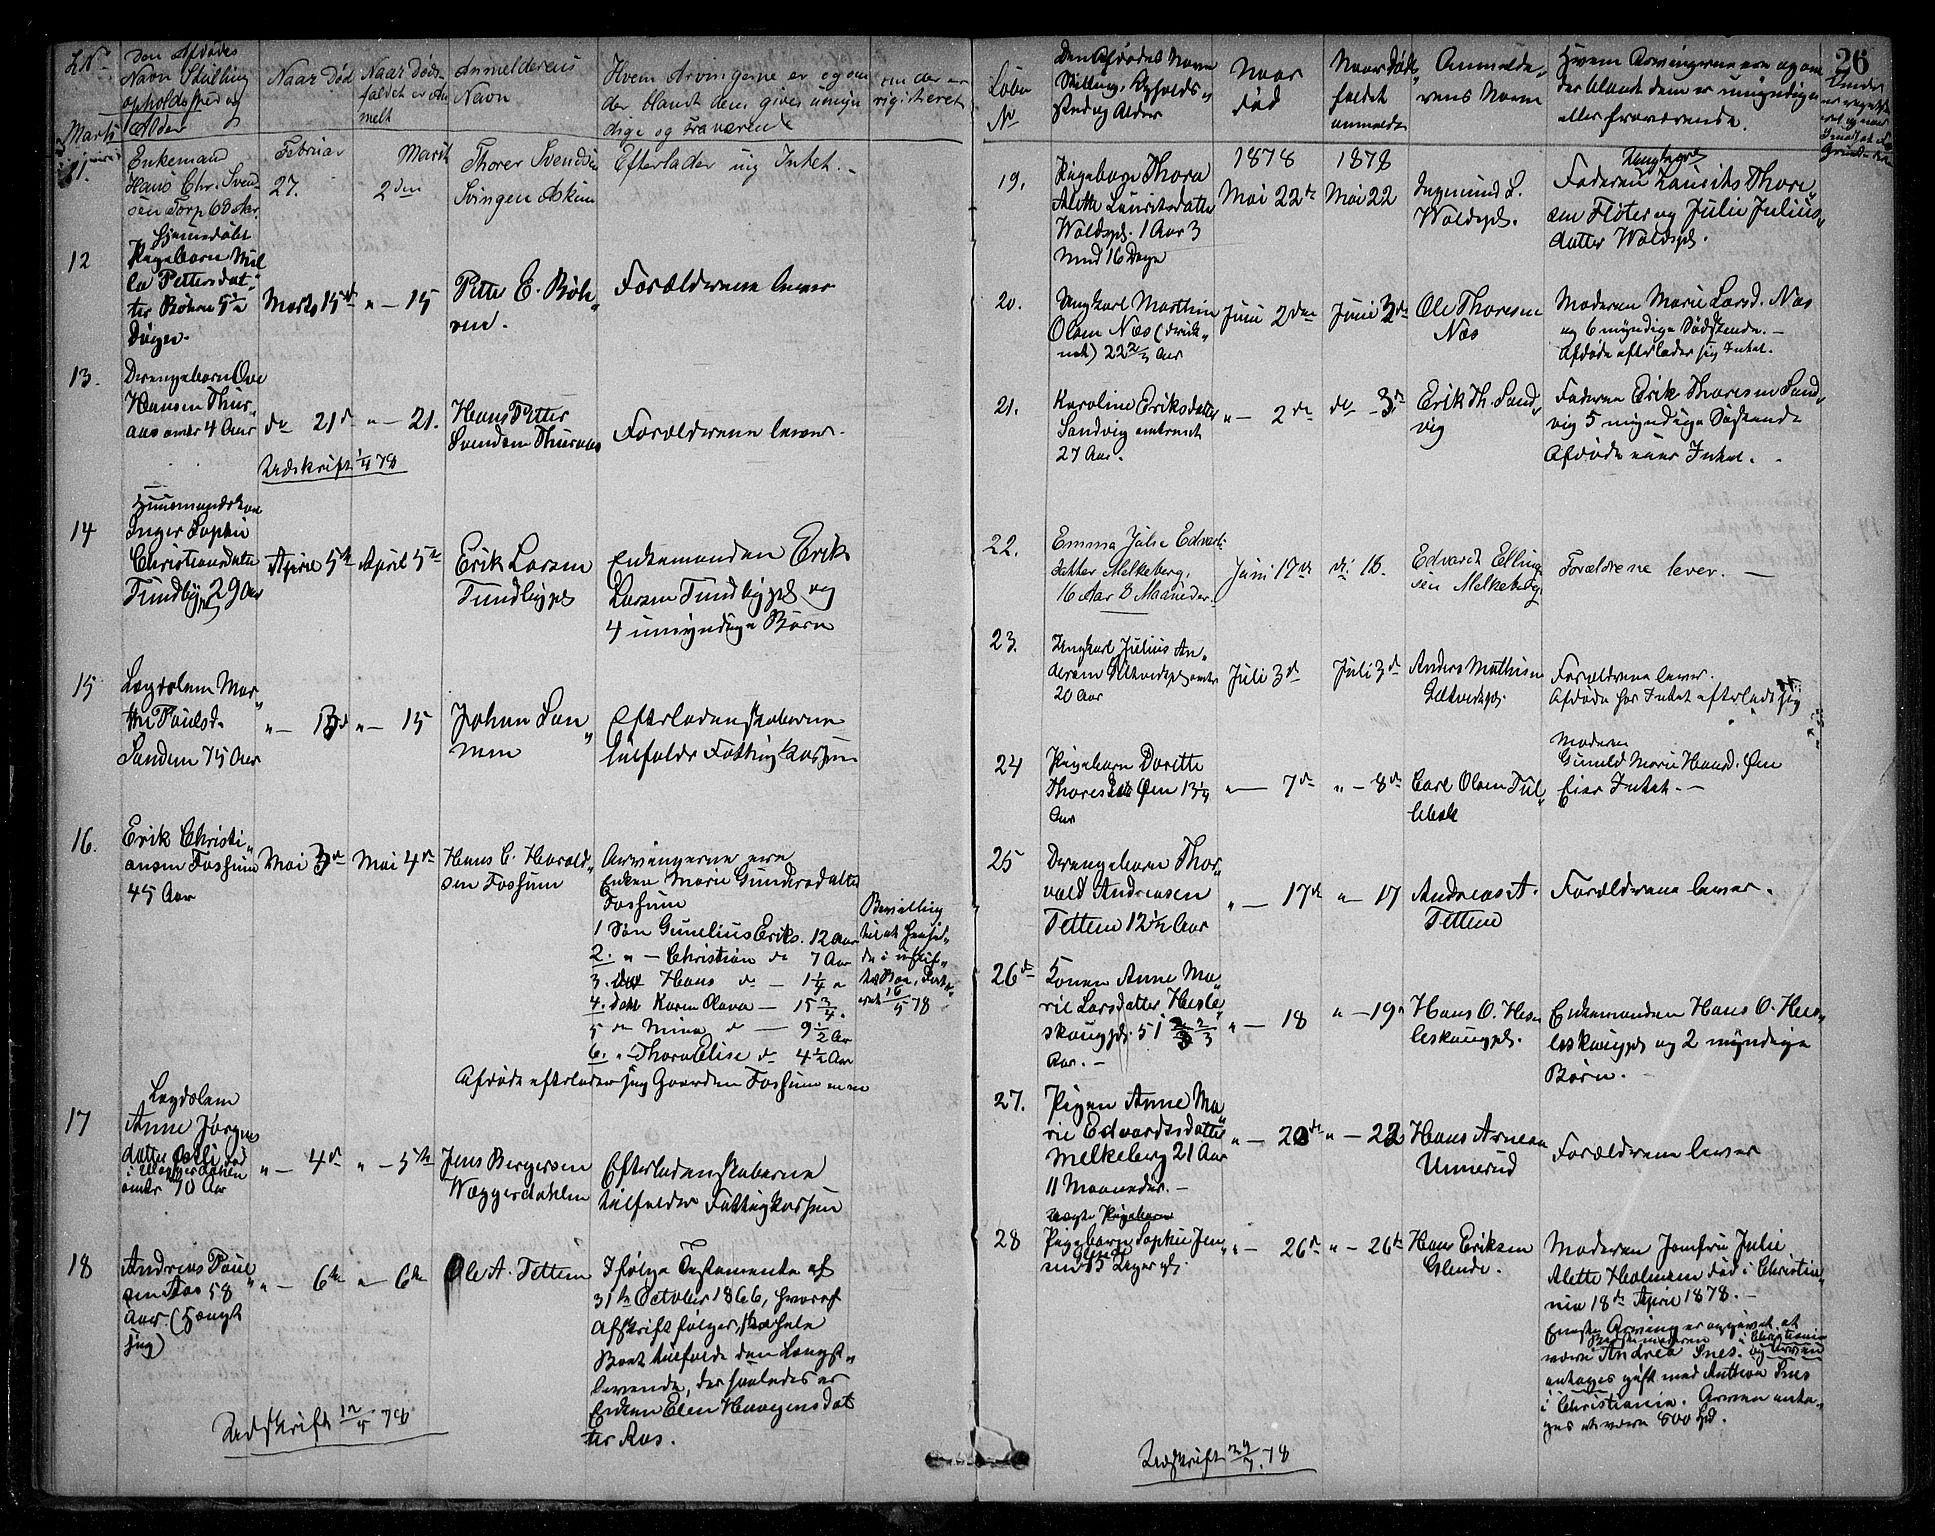 LN.
Den Afdødes
Navn Stilling
opholdssted og
Alder
Naar Død
Naar Døds-
faldet er An
melt
Anmelderens
Navn
Hvem Arvingerne er og om
der blandt dem gives umyn
dige og Fraværend
om der er
rigistreret
Marts
11.
Enkemand
Hans Chr. Svend-
sen Torp 68 Aar.
Februar
27.
Marts
2den
Thorer Svendsen
Svingen Askim
Efterlader sig Intet. -
12
Hjemmedøbt
Pigebarn Mil
la Pettersdat-
ter Bøhn 5½
Døgn.
Marts 15de
" - 15
Petter E. Bøh"
ren.
Forældrene lever
13.
Drengebarn Ove
Hansen Thur"
aas omtr 4 Aar
do 21de
" - 21.
Hans Petter
Svendsen Thuraas
Forældrene lever.
Udskrift 1/4 78
14
Huusmandskone
Inger Sophie
Christiansdatter
Tundbypl 29 Aar
April 5te
April 5te
Erik Larsen
Tundbypl
Enkemanden Erik
Larsen Tundbypl og
4 umyndige Børn
15
Lægdslem Mar"
the Poulsd.
Sandem 75 Aar
" - 13de
" - 15
Johan San"
nem
Efterladenskaberne
tilfalder Fattigkassen
16.
Erik Christi"
ansen Fossum
45 Aar
Mai 3de
Mai 4de
Hans C. Harald"
sen Fossum
Arvingerne ere
Enken Marie Gundersdatter
Fossum
1 Søn Gunelius Eriks. 12 Aar
2. " - Christian do 7 Aar
3. Hans do - 1¼ "
4. datt Karen Olava - 15 3/4.
5 do Mina do - 9½ Aar
6. " - Thora Elise do 4½ Aar
Afdøde efterlader sig Gaarden Fossum m m
Bevilling
til at hensid"
de i uskif"
tet Boe,
16/5 78
17
Lægdslem
Anne Jørgens
datter Østlid
i Wæggerdahlen
omtr 70 Aar
" - 4de
" - 5te
Jens Bergersen
Wæggerdahlen
Efterladenskaberne
tilfalder Fattigkassen
18
Andreas Poul"
sen Aas 58
Aar (hængt
sig)
" - 6te
" - 6te
Ole A. Tettem
Ifølge Testamente af
31te October 1866, hvoraf
Afskrift følger, skal hele
Boet tilfalde den Længst"
levende, der saaledes er
Enken Elen Haagensdat
ter Aas.
Udskrift 12/5 78
26
Løbe
No
Den Afdødes Navn
Stilling, Opholds"
sted og Alder
Naar
død
Naar Døds"
faldet
anmeldt
Anmelde"
rens Navn
Hvem Arvingerne ere og om
der blandt dem er umyndige
eller fraværende.
1878
1878
19.
Pigebarn Thora
Alette Lauritsdatter
Woldspl. 1 Aar 3
Mnd 16 Dage
Mai 22de
Mai 22
Ingmund L.
Woldspl.
Ungkarl
Faderen Laurits Thore"
sen Fløter og Julie Julius"
datter Woldspl.
20.
Ungkarl Marthin
Olsen Næs (druk"
net) 22 2/3 Aar
Juni 2den
Juni 3de
Ole Thoresen
Næs
Moderen Marie Larsd. Næs
og 6 myndige Sødskende. -
Afdøde efterlader sig Intet.
21.
Karoline Eriksdatter
Sandvig omtrent
27 Aar.
" - 2de
do - 3de
Erik Th. Sand"
vig
Faderen Erik Thoresen Sand"
vig 5 myndige Søskende
Afdøde eier Intet. -
22.
Emma Julie Edvards
datter Melkeberg,
16 Aar 8 Maaneder.
Juni 17de
do 18.
Edvard Elling
sen Melkeberg
Forældrene lever. -
23.
Ungkarl Julius An"
dersen omtr
20 Aar
Juli 3de
Juli 3de
Anders Mathisen
Forældrene lever.
Afdøde har Intet efterladt sig
24
Pigebarn Dorette
Thoresdatt Øen 13¼
Aar
" - 7de
" - 8de
Carl Olsen Tul"
lebek
Moderen
Gunild Marie Hansd. Øen
Eier Intet. -
25
Drengebarn Thor"
vald Andreasen
Tettem 12½ Aar
" - 17de
" - 17
Andreas A.
Tettem
Forældrene lever.
26de
Konen Anne Ma"
rie Larsdatter Hesle"
skougpl. 51 2/3
Aar. -
" - 18
" - 19"
Hans O. Hes"
leskougpl.
Enkemanden Hans O. Hes"
leskougpl og 2 myndige
Børn. -
27.
Pigen Anne Ma"
rie Edvardsdatter
Melkeberg 21 Aar
11 Maaneder. -
" - 20de
" - 22
Hans Arnesen
Unnerud
Forældrene lever
28
Pigebarn Sophie Jen"
sen 15 Dage gl.
" - 26de
" - 26de
Hans Eriksen
Glende.
Moderen Jomfru Julie
Alette Holmsen død i Christia"
nia 18de April 1878. -
Eneste Arving er opgivet at
Bestemoderen i Christiania
være Andrea Snes. og Arven
antages gift med Anthon Snes
i Christiania. Arven anta"
ges at være 800 Spd.
Udskrift 29/7. 78